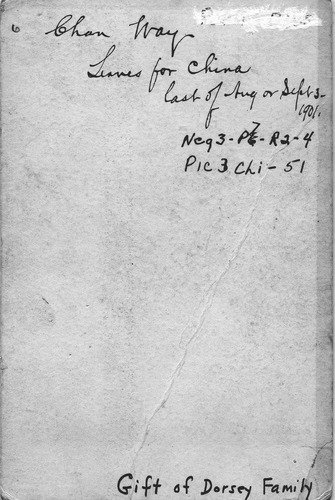 6
Chan Way
Leaves for China
last of Aug or Sept 3-
1901.
Neg3-P7-R2-4
PIC 3 Chi-51
Gift of Dorsey Family